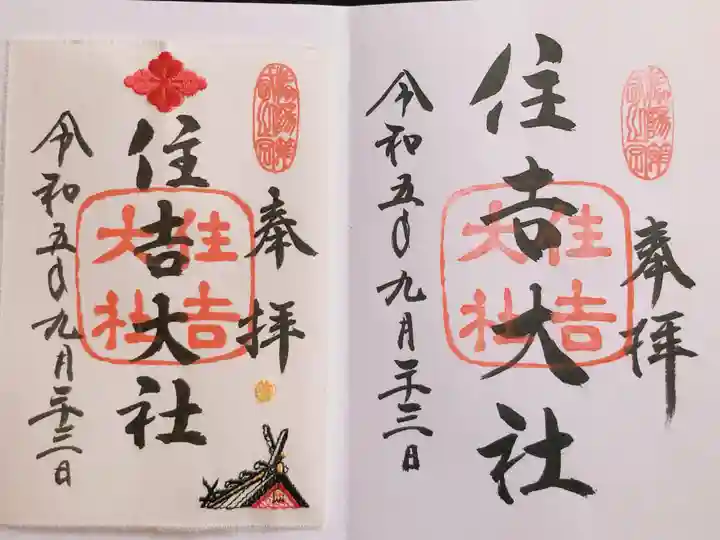 奉拝
住吉大社
住吉
大社
令和五年九月二十三日
奉拝
住吉大社
住吉
大社
令和五年九月二十三日